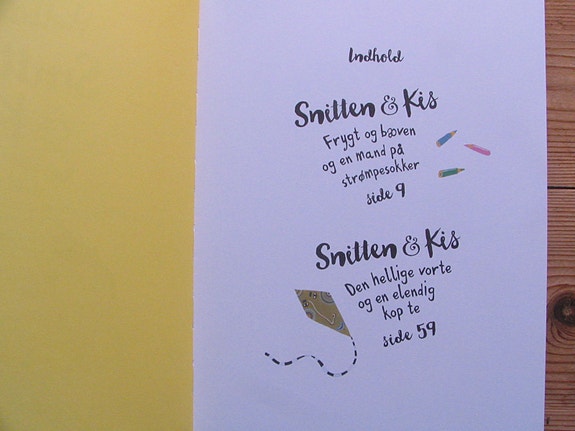 Indhold
Snitten & Kis
Frygt og bæven
og en mand på
strømpesokker
side 9
Snitten & Kis
Den hellige vorte
og en elendig
kop te
side 59